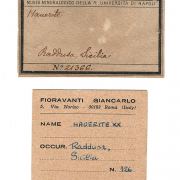 MUSEO MINERALOGICO DELLA R. UNIVERSITÀ DI NAPOLI
Hauerite
Raddusa, Sicilia
N.° 21366.
FIORAVANTI GIANCARLO
5, Via Norico - 00183 Roma (Italy)
NAME HAUERITE XX
OCCUR. Raddusa,
Sicilia
N. 126